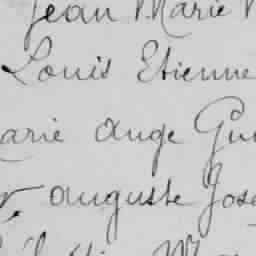 Jean Marie
Louis Etienne
arie Ange Gui
Auguste Jose